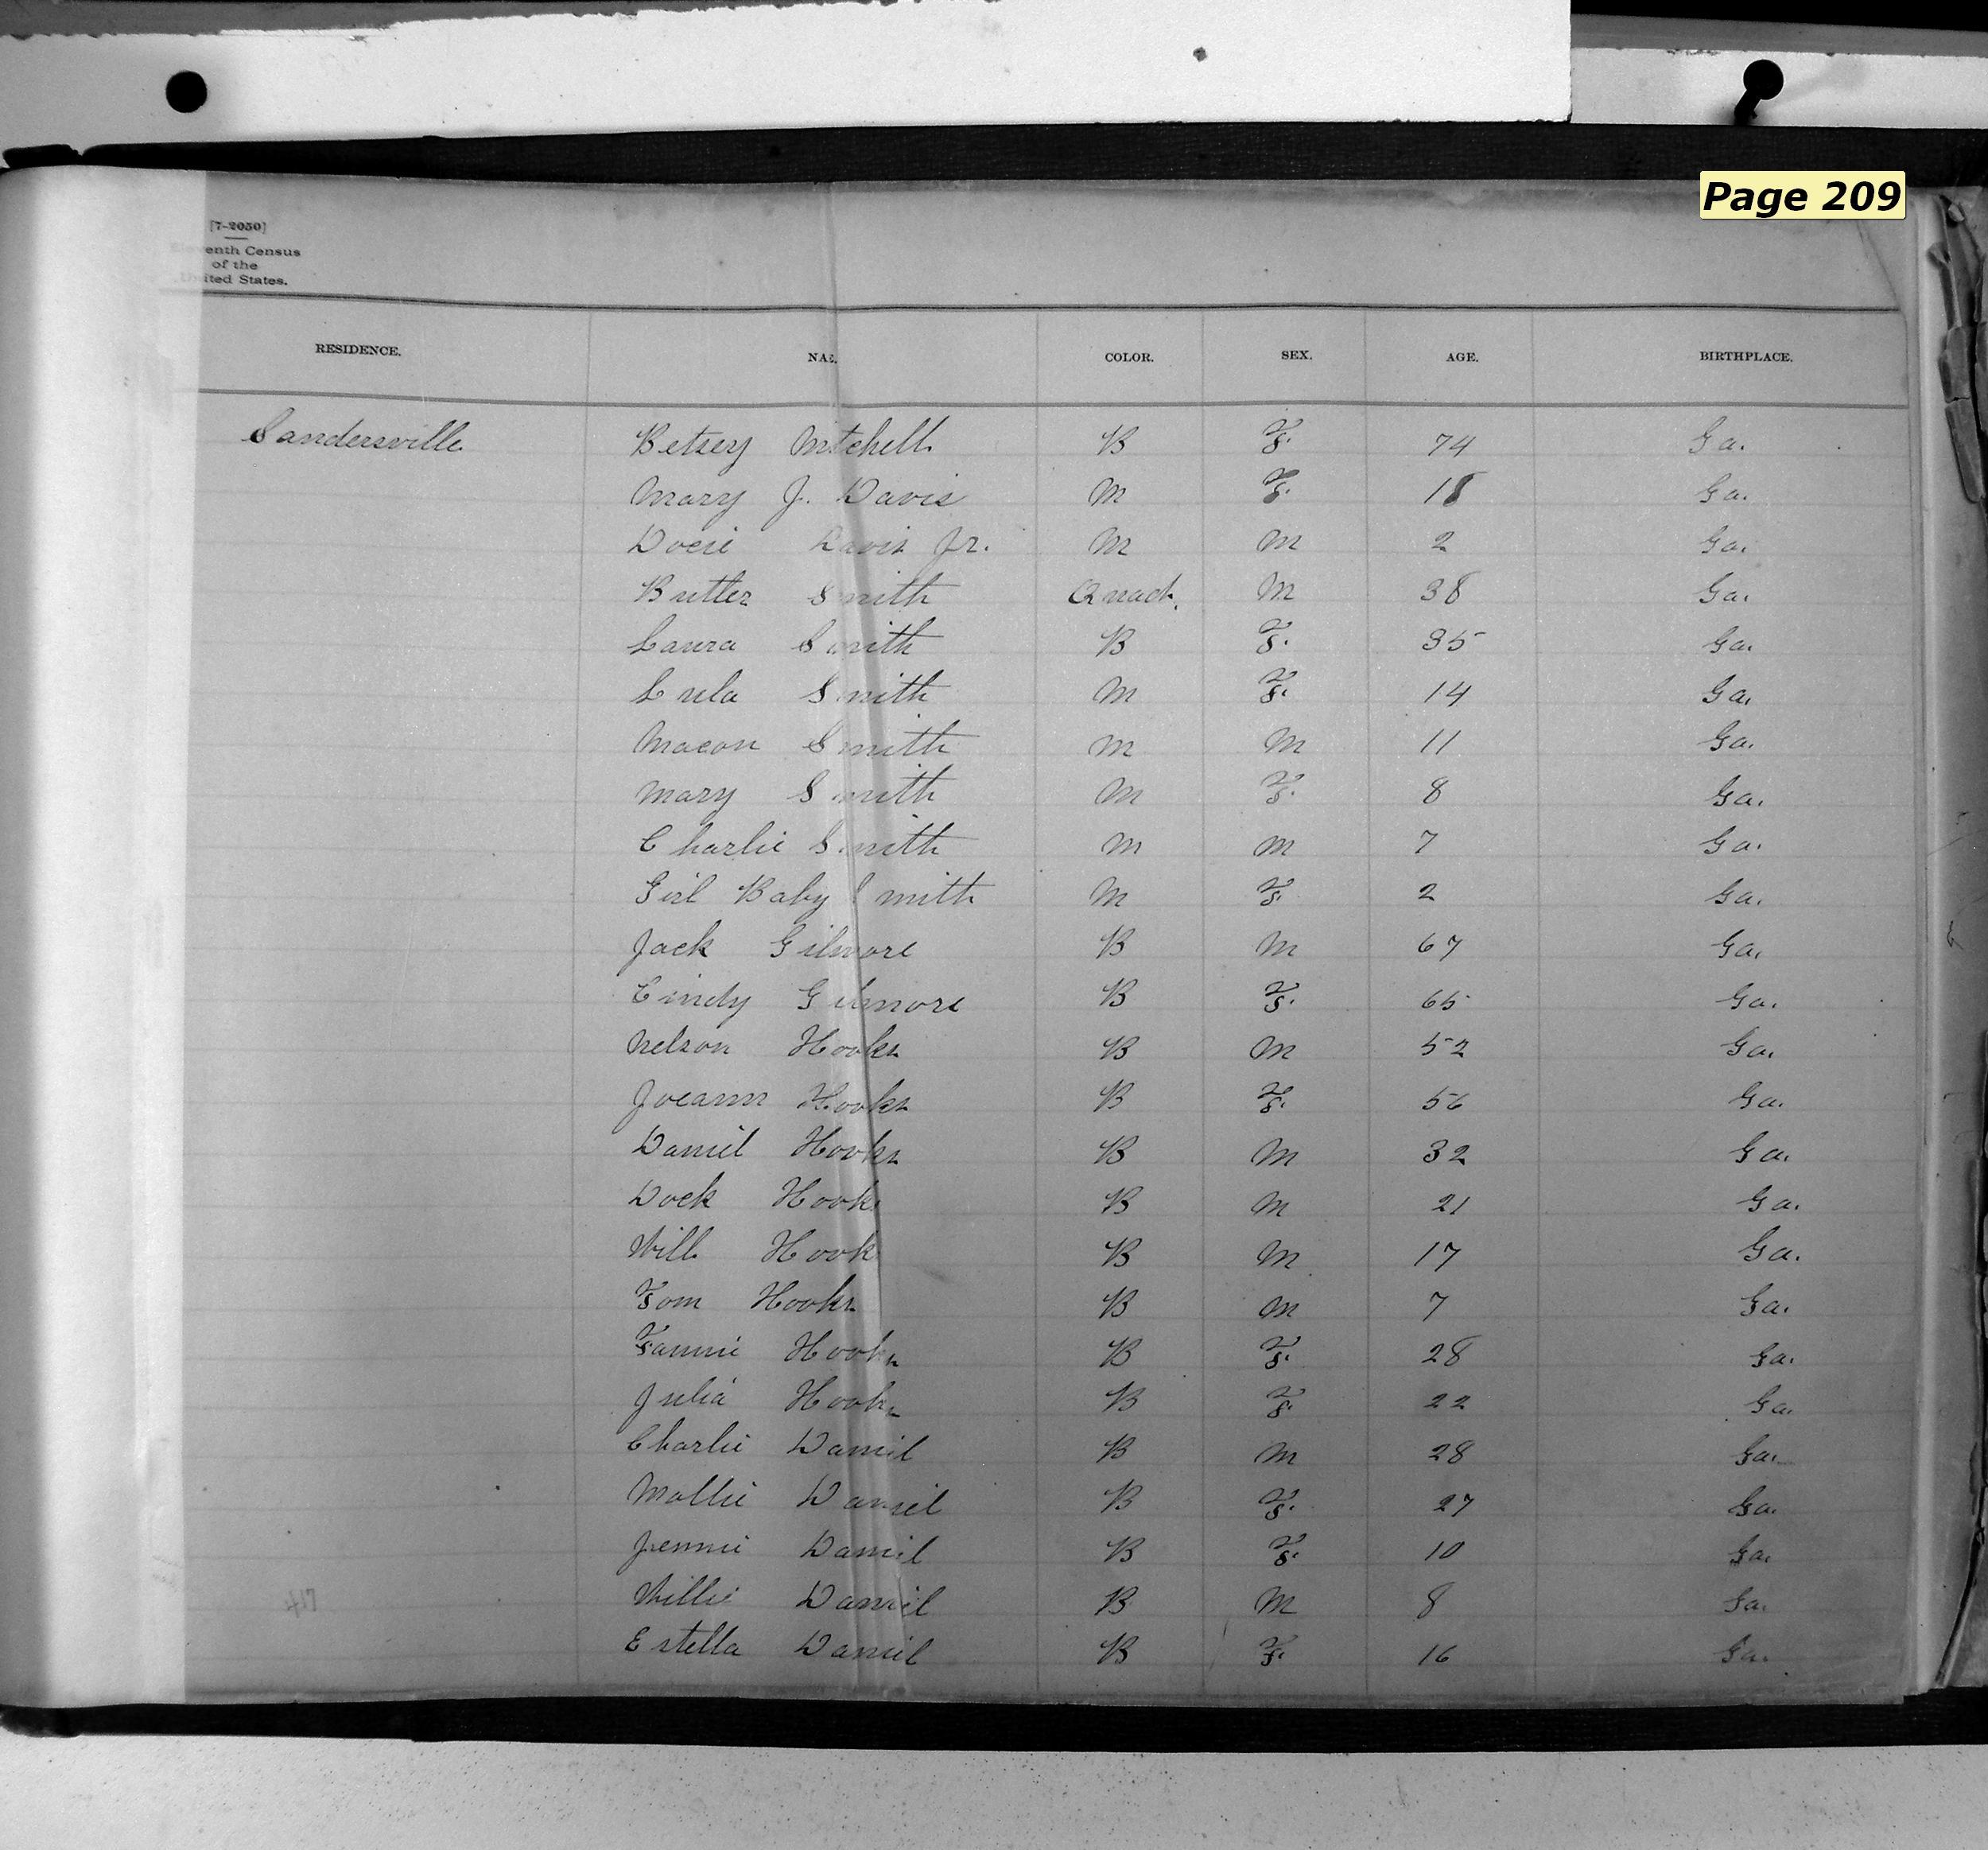 Page 209
[7-2050]
enth Census
of the
ited States.
RESIDENCE. NA COLOR. SEX. AGE. BIRTHPLACE.
Sandersville Betsey Mitchell B F. 74 Ga.
Mary J. Davis M F. 18 Ga.
Davis Jr. M M 2 Ga.
Butler Smith Quad. M 38 Ga.
Laura Smith B F. 35 Ga.
Lula Smith M F. 14 Ga.
Macon Smith M M 11 Ga.
Mary Smith M F. 8 Ga.
Charlie Smith M M 7 Ga.
Girl Baby Smith M F. 2 Ga.
Jack Gilmore B M 67 Ga.
Cindy Gilmore B F. 65 Ga.
Nelson Hooks B M 52 Ga.
Joeann Hooks B F. 56 Ga.
Daniel Hooks B M 32 Ga.
Dock Hooks B M 21 Ga.
Will Hook B M 17 Ga.
Tom Hooks B M 7 Ga.
Fannie Hooks B F. 28 Ga.
Julia Hooks B F. 22 Ga.
Charlie Daniel B M 28 Ga.
Mollie Daniel B F. 27 Ga.
Jennie Daniel B F. 10 Ga.
Willie Daniel B M 8 Ga.
Estella Daniel B F. 16 Ga.